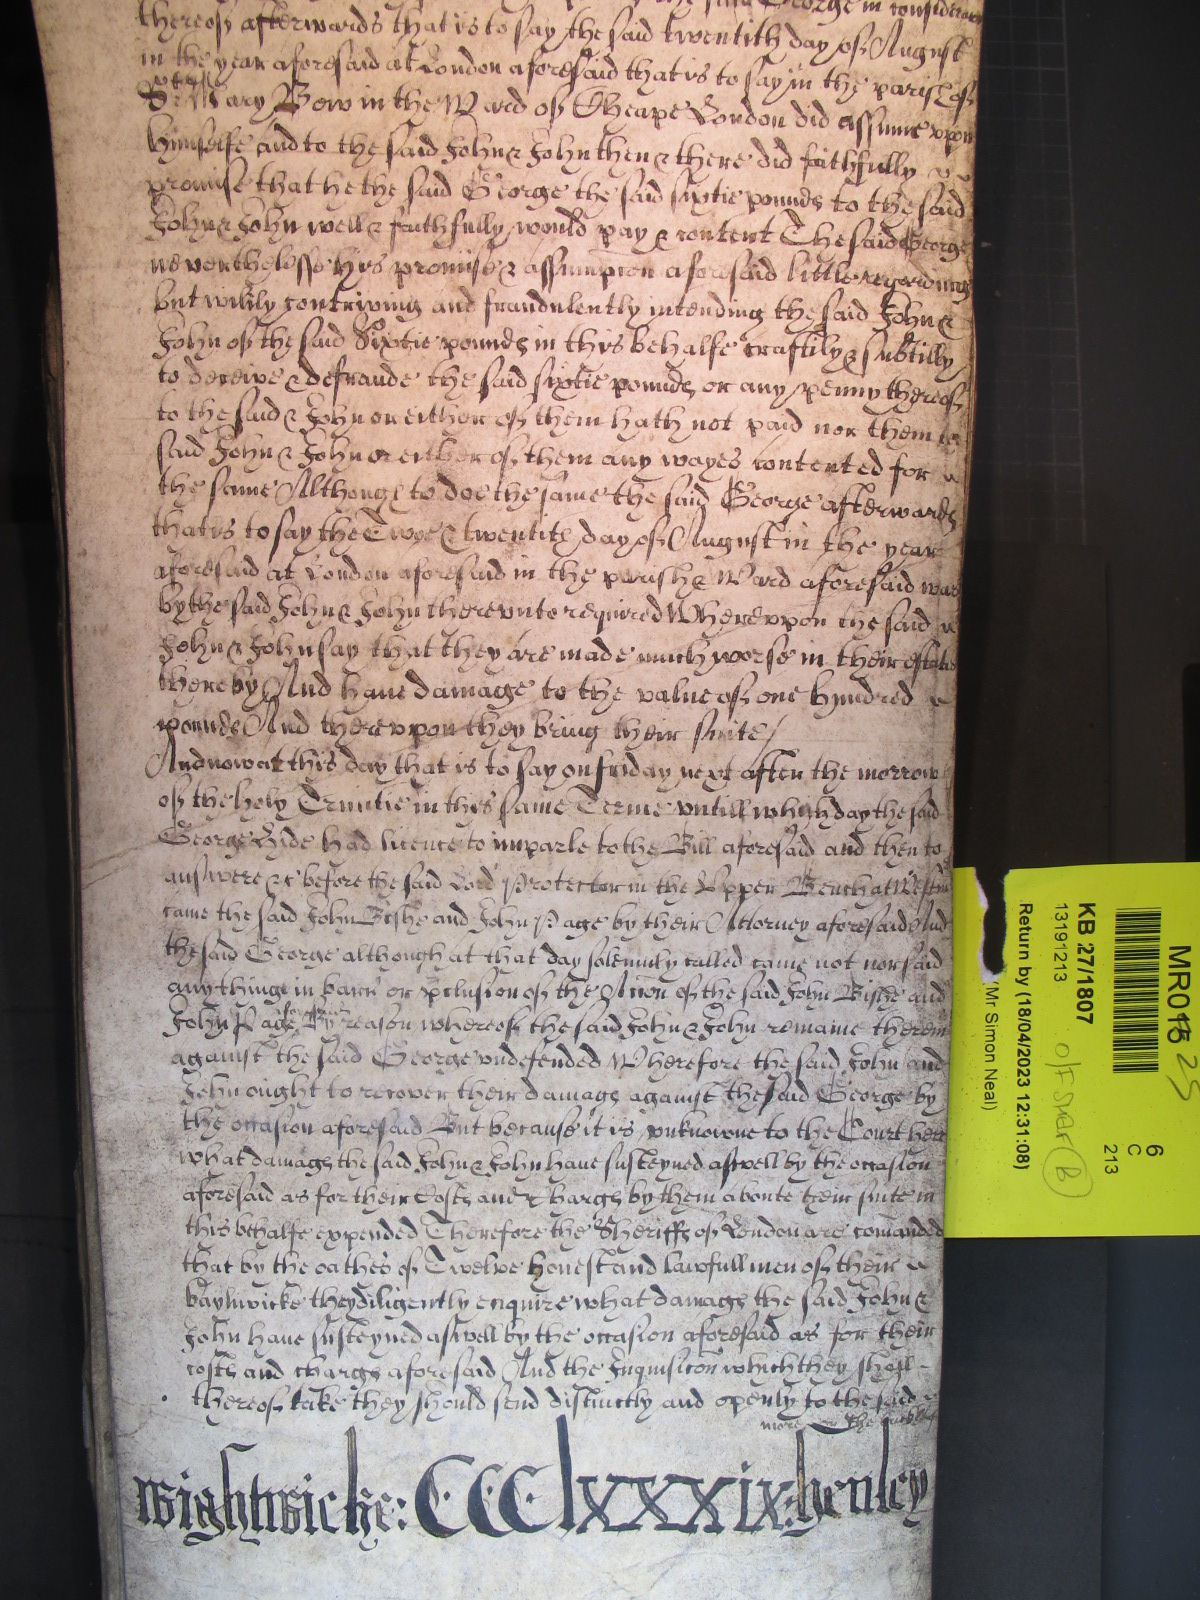 the said George in consideracon
thereof afterwards that is to say the said twentith day of August
in the yeare aforesaid at London aforesaid that is to say in the parish of
St Mary Bow in the Ward of Cheape London did assume vpon
himselfe and to the said John & John then & there did faithfully
promise that he the said George the said sixtie pounds to the said
John & John well & faithfully would pay & content The said George
neverthelesse his promise & assumpcon aforesaid little regarding
but wilily contriving and fraudulently intending the said John &
John of the said Sixtie pounds in this behalfe craftily & subtilly
to deceive & defraude the said sixtie pounds or any penny thereof
to the said & John or either of them hath not paid nor them the
said John & John or either of them any wayes contented for
the same Although to doe the same the said George afterwards
that is to say the Twoe & twentith day of August in the yeare
aforesaid at London aforesaid in the parish & Ward aforesaid was
by the said John & John therevnto required Wherevpon the said
John & John say that they are made much worse in their estate
thereby And have damage to the value of one hundred
pounds And therevpon they bring their suite /
And now at this day that is to say on friday next after the morrow
of the holy Trinitie in this same Terme vntill which day the said
George Hide had licence to imparle to the Bill aforesaid and then to
answere &c before the said Lord Protector in the Vpper Bench at Westm
came the said John Bishe and John Page by their Attorney aforesaid And
the said George although at that day solemnly called came not nor said
any thinge in barr or preclusion of the Accon of the said John Bishe and
John Page By reason whereof the said John & John remaine therein
against the said George vndefended Wherefore the said John and
John ought to recover their damags against the said George by
the occasion aforesaid But because it is vnknowne to the Court here
what damags the said John & John have susteyned aswell by the occasion
aforesaid as for their Costs and Chargs by them aboute their suite in
this behalfe expended Therefore the Sheriffs of London are comanded
that by the oathes of Twelve honest and lawfull men of their
bayliwicke they diligently enquire what damags the said John &
John have susteyned aswell by the occasion aforesaid as for their
costs and chargs aforesaid And the Inquisicon which they shall
thereof take they should send distinctly and openly to the said
more on the backside
Wightwicke: CCClxxxix: henley
MR015
25
6
C
213
KB 27/1807
13191213
Return by (18/04/2023 12:31:08)
(Mr Simon Neal)